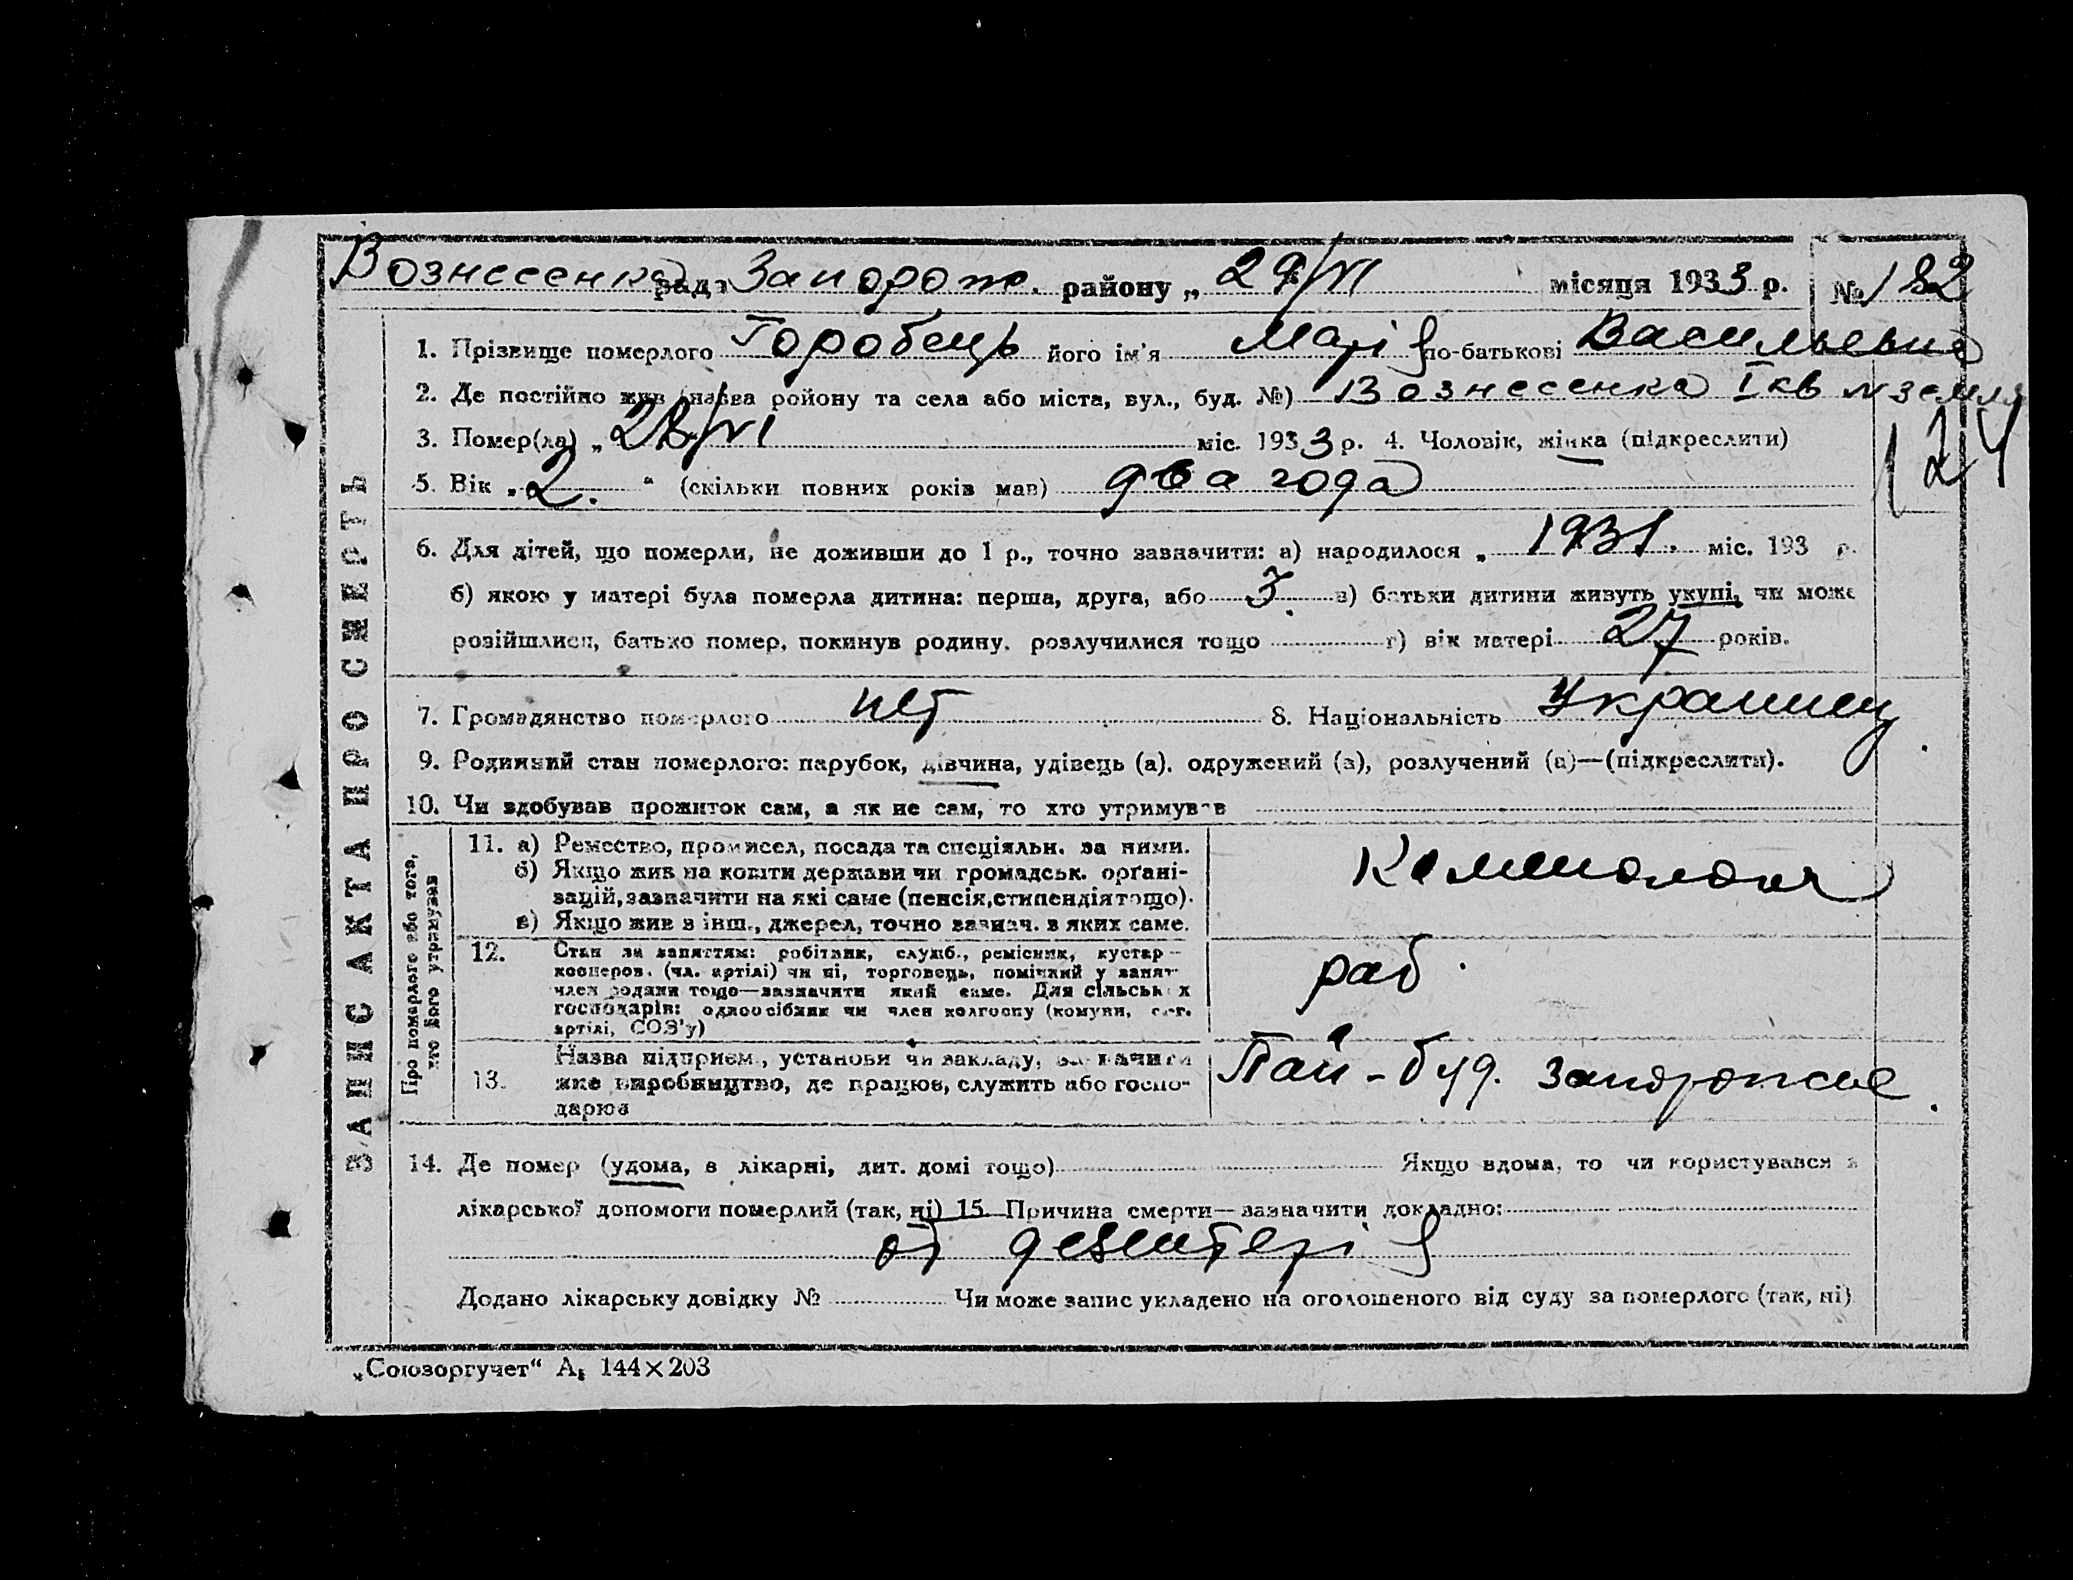 Вознесенка рада Запорож. району „ 29/VI місяця 1933 р. № 182
1. Прізвище померлого Горобець його ім'я Марія по-батькові Васильевна
2. Де постійно жив (назва району та села або міста, вул., буд. №) Вознесенка I кв
3. Помер(ла) „ 28/VI міс. 1933 р. 4. Чоловік, жінка (підкреслити)
124
5. Вік „ 2. “ (скільки повних років мав) два года
6. Для дітей, що померли, не доживши до 1 р., точно зазначити: а) народилося „ 1931. міс. 193 р.
б) якою у матері була померла дитина: перша, друга, або 3. в) батьки дитини живуть укупі, чи може
розійшлися, батько помер, покинув родину, розлучилися тощо г) вік матері 27 років.
7. Громадянство померлого нет 8. Національність Украинец
9. Родинний стан померлого: парубок, дівчина, удівець (а), одружений (а), розлучений (а)—(підкреслити).
10. Чи здобував прожиток сам, а як не сам, то хто утримував
ЗАПИС АКТА ПРО СМЕРТЬ
Про померлого або того, хто його утримував
11. а) Ремество, промисел, посада та спеціяльн. за ними.
б) Якщо жив на кошти держави чи громадськ. орґані-
зацій, зазначити на які саме (пенсія, стипендія тощо).
в) Якщо жив з інш., джерел, точно зазнач. з яких саме.
12. Стан за заняттям: робітник, служб., ремісник, кустар—
кооперов. (чл. артілі) чи ні, торговець, помічний у занят.
член родини тощо—зазначити який саме. Для сільських
господарів: одноосібник чи член колгоспу (комуни, с.-г.
артілі, СОЗ'у)
раб.
13. Назва підприєм., установи чи закладу, зазначити
яке виробництво, де працює, служить або госпо-
дарює
Пай-буд. Запорожье.
14. Де помер (удома, в лікарні, дит. домі тощо) Якщо вдома, то чи користувався з
лікарської допомоги померлий (так, ні) 15. Причина смерти—зазначити докладно:
от дезентерія
Додано лікарську довідку № Чи може запис укладено на оголошеного від суду за померлого (так, ні)
„Союзоргучет“ А₅ 144×203